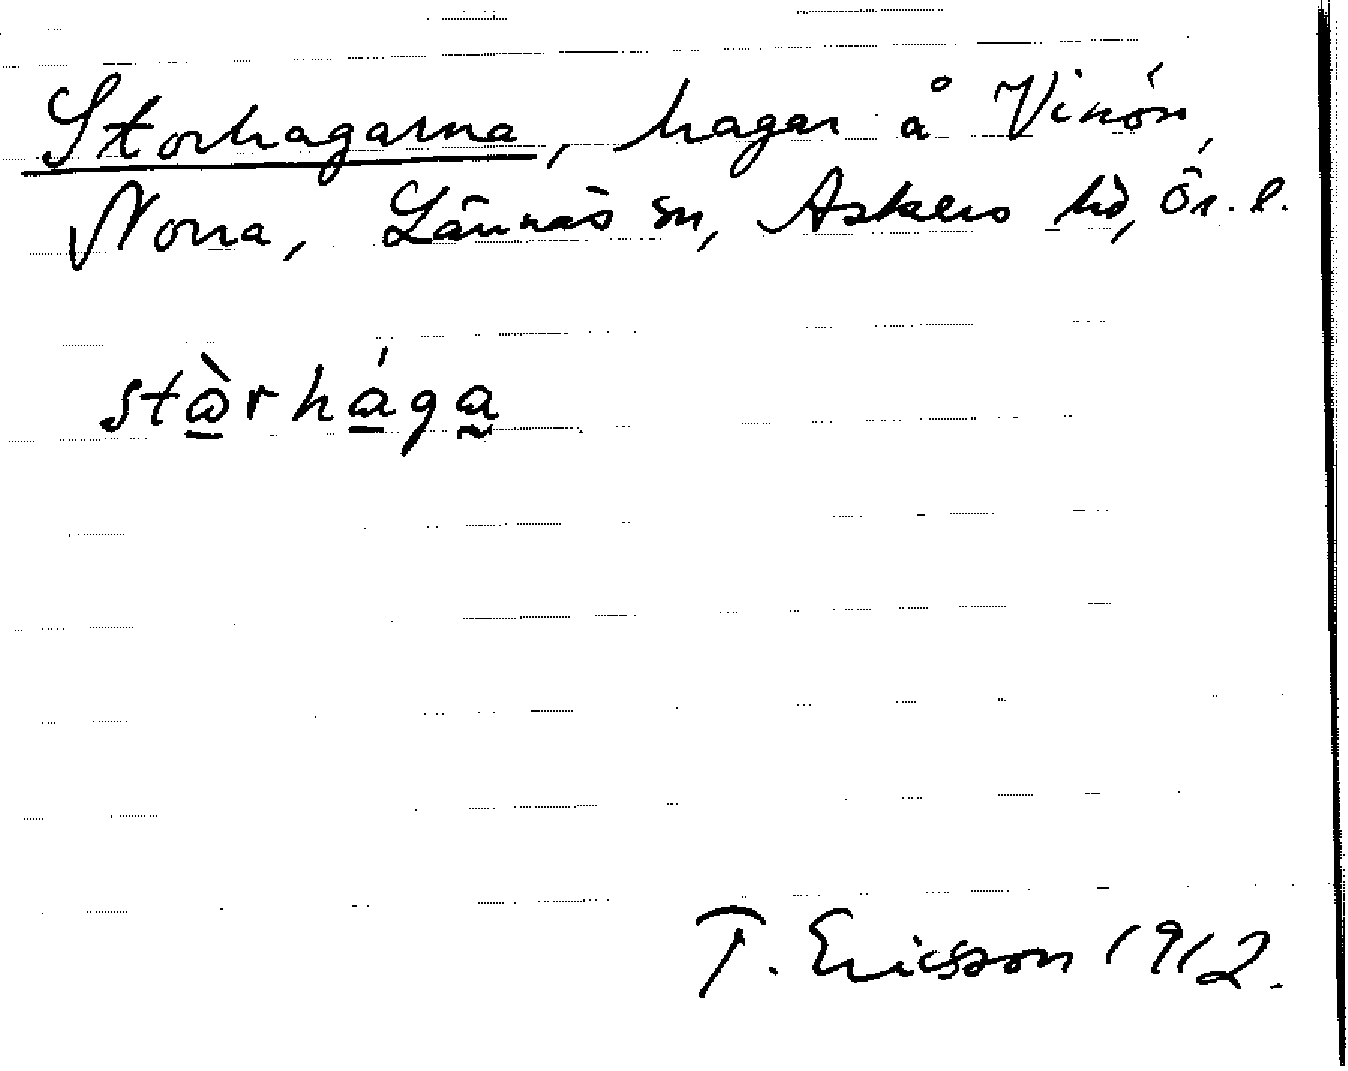 Storhagarna, hagar å Vinön,
Norra, Lännäs sn, Askers hd, Ör. l.
stàrhága
T. Ericsson 1912.